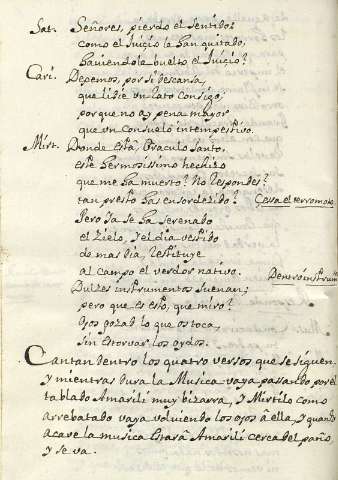 Sat. Señores, pierdo el sentido:
como el Juiçio le han quitado,
haviendole buelto el Juiçio?
Cari. Dexemos, por si descansa,
que lidie un rato consigo,
porque no ay pena mayor
que un consuelo intempestivo.
Mirt. Donde està, Oraculo Santo,
este hermosissimo hechizo
que me ha muerto? No respondes?
tan presto te has ensordezido? Cessa el terremoto.
Pero Ya se ha serenado
el Zielo, y el dia vestido
de mas dia, restituye
al campo el verdor nativo. Dentro instrum
Dulzes instrumentos suenan;
pero que es esto, que miro?
Ojos gozad lo que os toca,
sin estorvar los oydos.
Cantan dentro los quatro versos que se siguen,
y mientras dura la Musica vaya passando por el
tablado Amarili muy bizarra, y Mirtilo como
arrebatado vaya volviendo los ojos à ella, y quando
acave la musica estarà Amarili cerca del paño,
y se va.